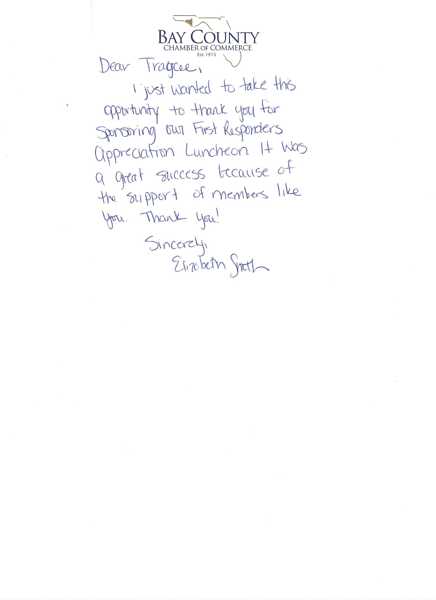 BAY COUNTY
CHAMBER OF COMMERCE
Est. 1913
Dear Tragcee,
I just wanted to take this
opportunity to thank you for
sponsoring our First Responders
Appreciation Luncheon. It was
a great success because of
the support of members like
you. Thank you!
Sincerely,
Elizabeth Smith